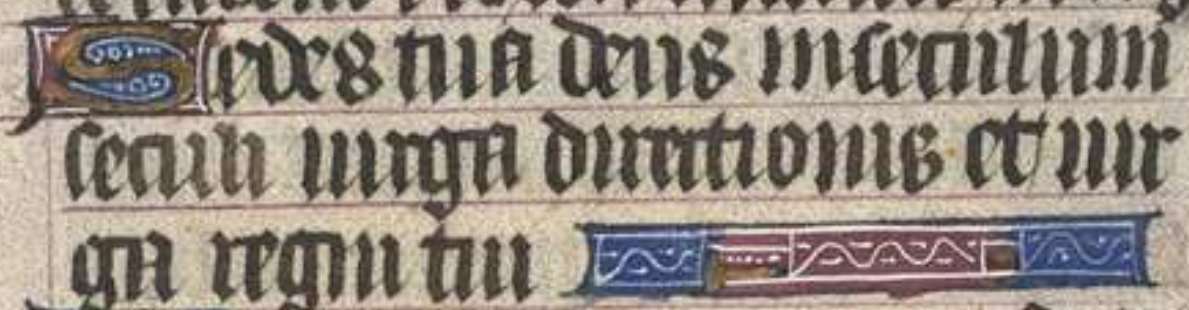 Sedes tua deus in seculum
seculi uirga directionis et uir
ga regni tui